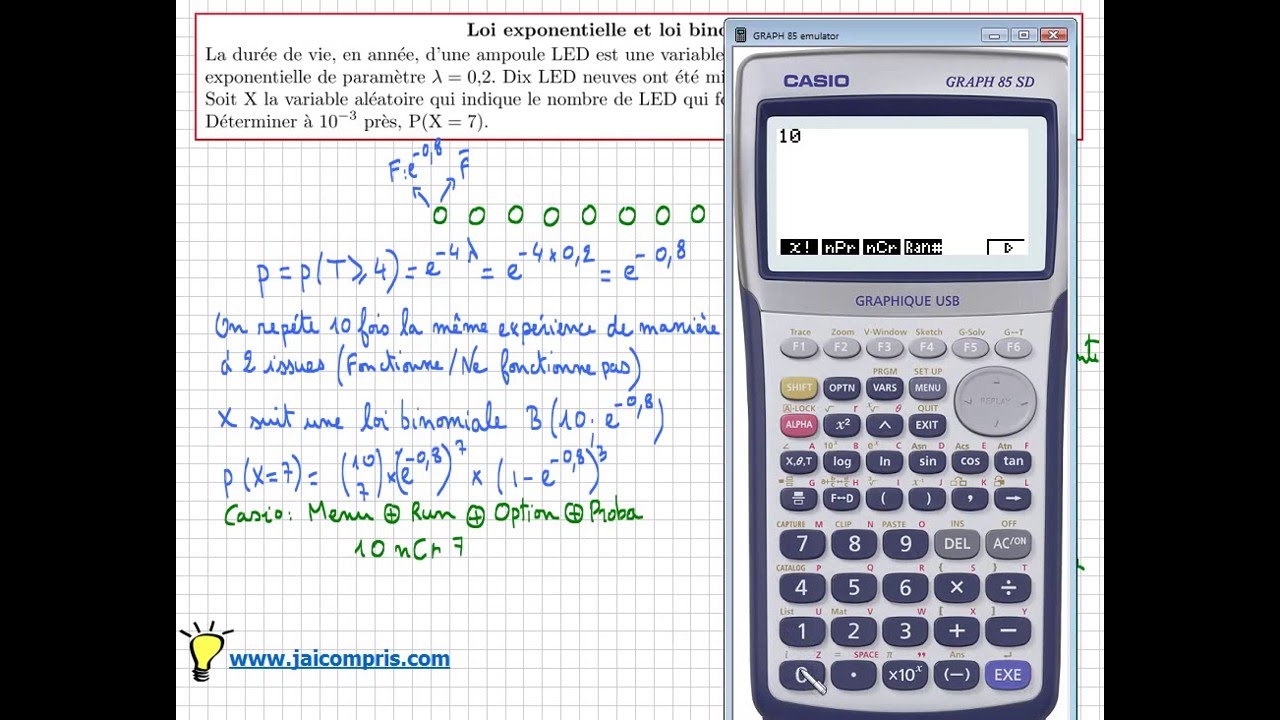 Loi exponentielle et loi bino
La durée de vie, en année, d'une ampoule LED est une variable
exponentielle de paramètre λ = 0,2. Dix LED neuves ont été mi
Soit X la variable aléatoire qui indique le nombre de LED qui fo
Déterminer à 10⁻³ près, P(X = 7).
F: e^-0,8 F̄
p = p(T⩾4) = e^-4λ = e^-4×0,2 = e^-0,8
On repéte 10 fois la même expérience de manière
à 2 issues (Fonctionne/Ne fonctionne pas)
X suit une loi binomiale B(10; e^-0,8)
p(X=7) = (10 7) × (e^-0,8)^7 × (1-e^-0,8)^3
Casio: Menu ⊕ Run ⊕ Option ⊕ Proba
10 nCr 7
www.jaicompris.com
GRAPH 85 emulator
CASIO GRAPH 85 SD
10
x! nPr nCr Ran# ▷
GRAPHIQUE USB
Trace Zoom V-Window Sketch G-Solv G↔T
F1 F2 F3 F4 F5 F6
PRGM SET UP
SHIFT OPTN VARS MENU
REPLAY
A-LOCK √ r ˣ√ θ QUIT
ALPHA x² ^ EXIT
∠ A 10ˣ B eˣ C Asn D Acs E Atn F
X,θ,T log ln sin cos tan
G H ³√ I x⁻¹ J K L
F↔D ( ) , →
CAPTURE M CLIP N PASTE O INS OFF
7 8 9 DEL AC/ON
CATALOG P Q R { S } T
4 5 6 × ÷
List U Mat V W [ X ] Y
1 2 3 + −
i Z = SPACE π " Ans ↵
0 . ×10ˣ (−) EXE